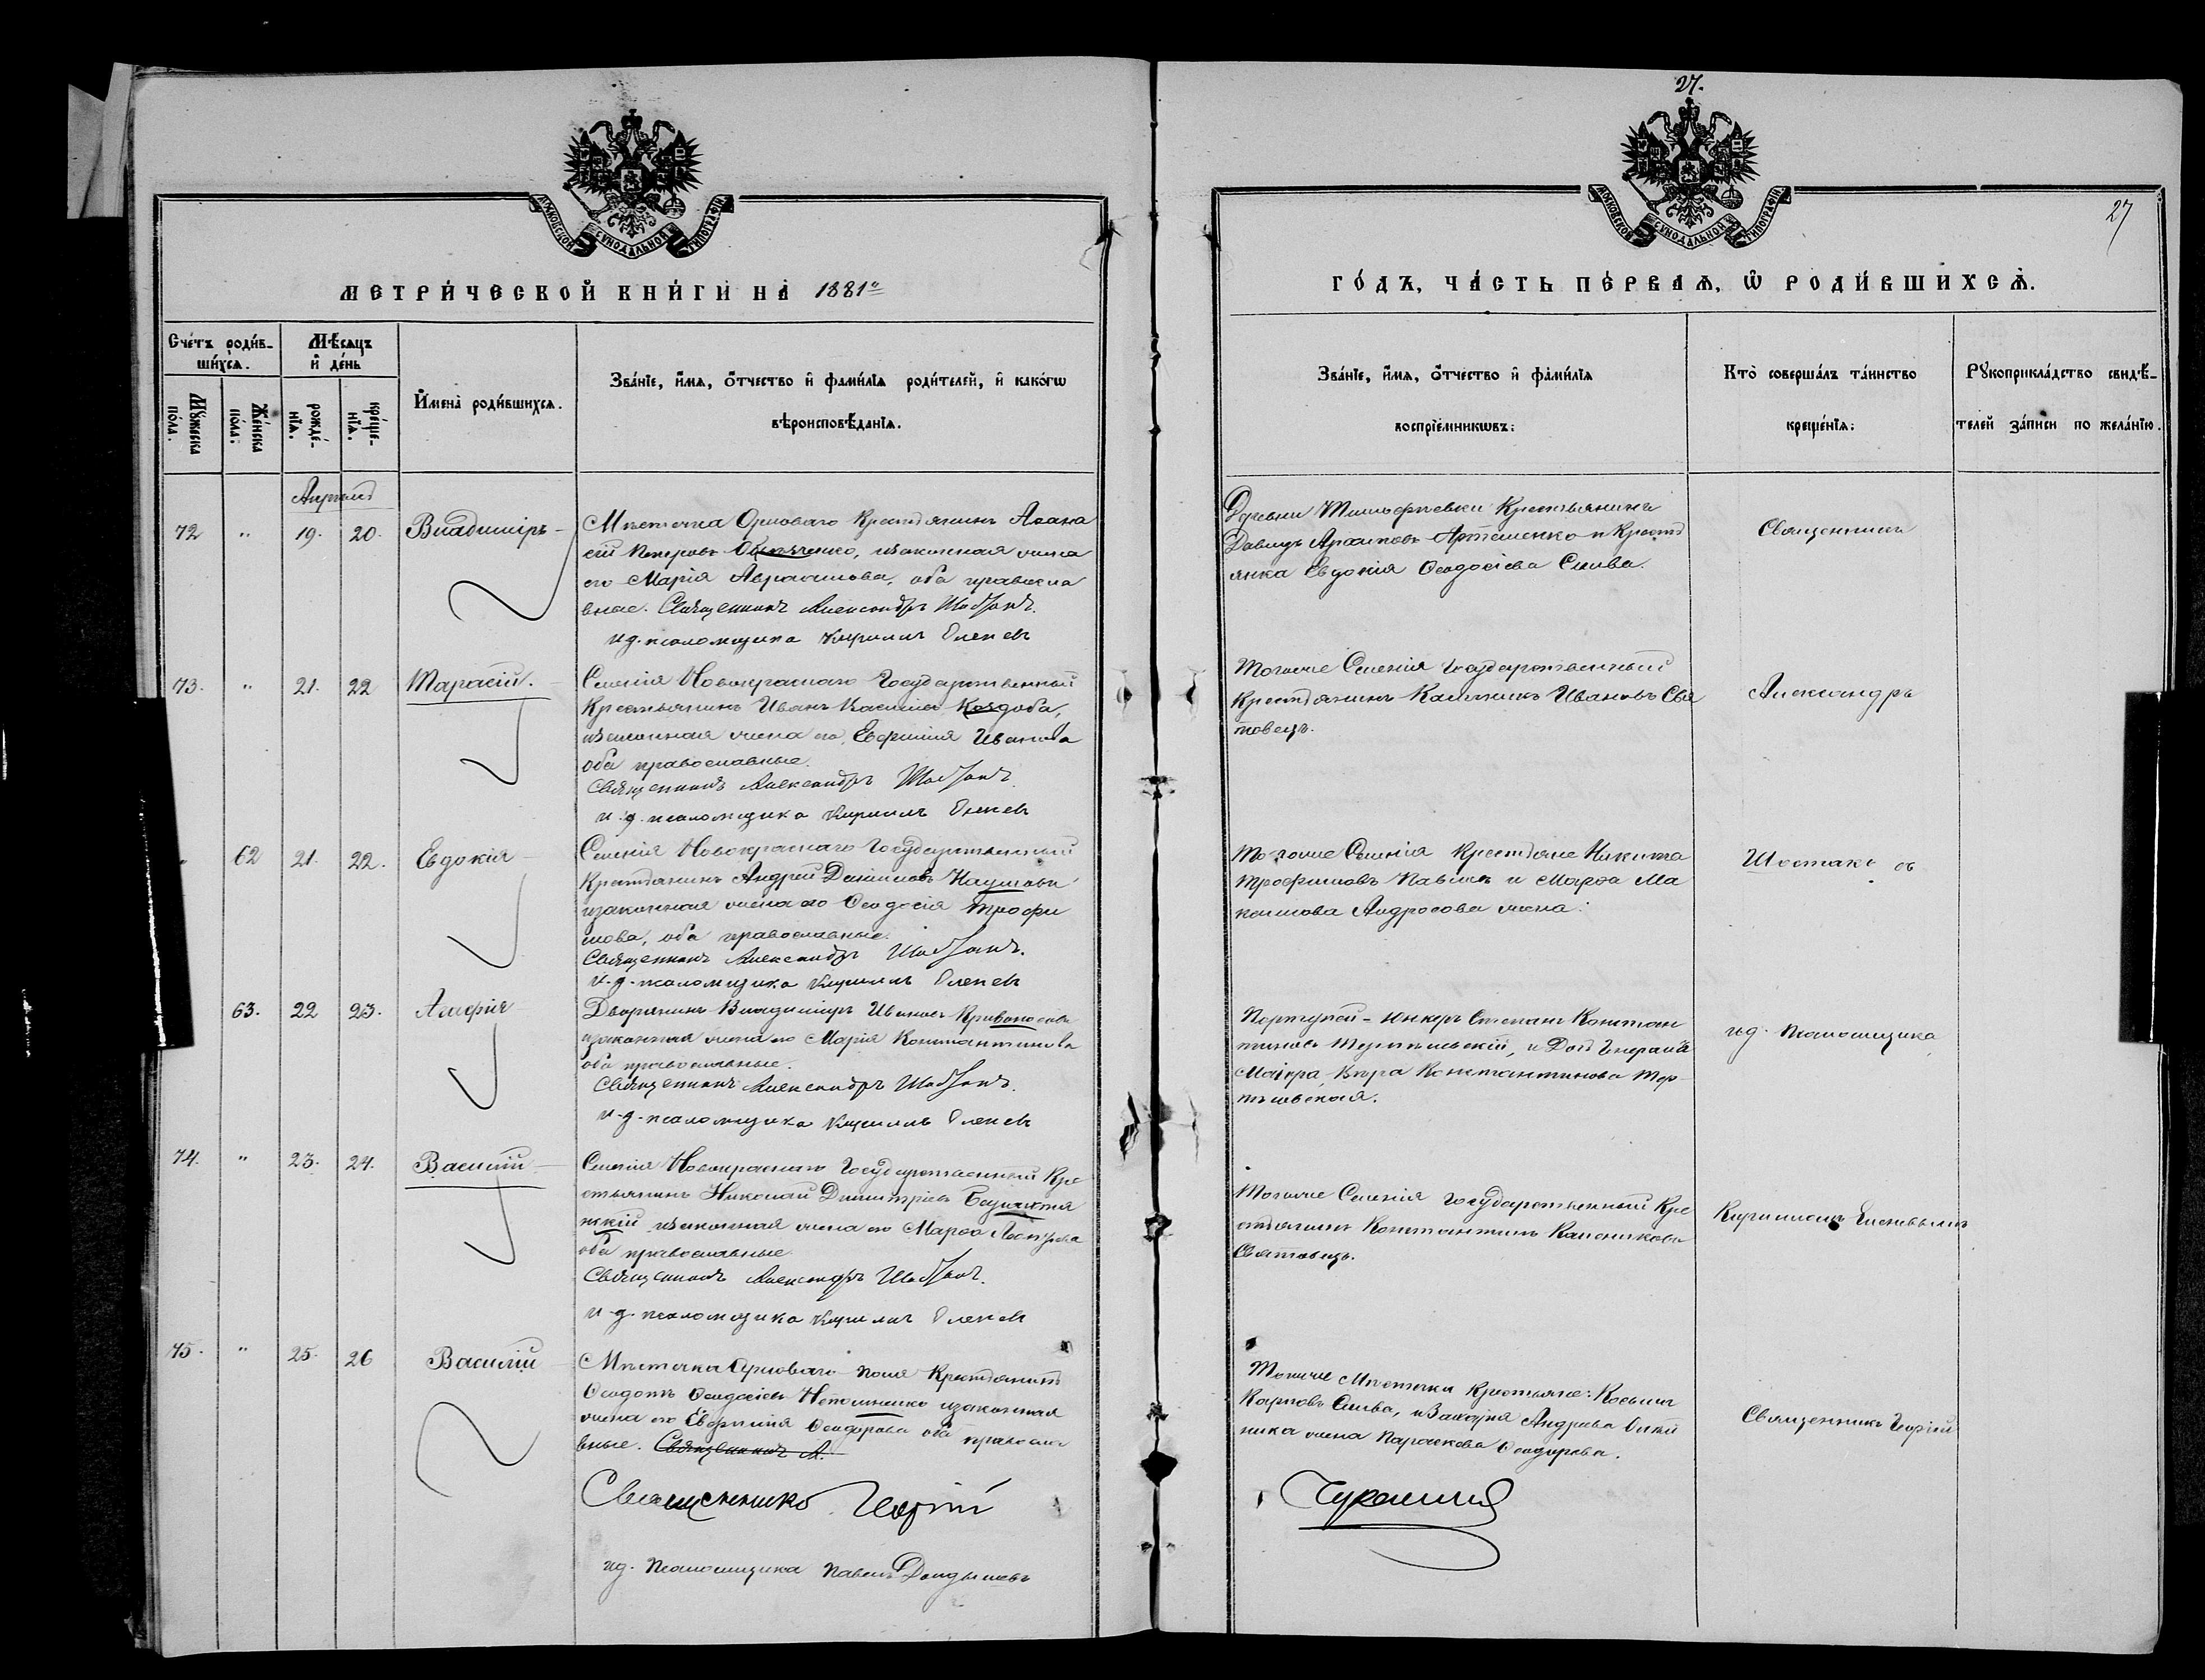 27.
27
МОСКОВСКОЙ СѴНОДАЛЬНОЙ ТИПОГРАФІИ
МОСКОВСКОЙ СѴНОДАЛЬНОЙ ТИПОГРАФІИ
МЕТРИ́ЧЕСКОЙ КНИ́ГИ НА̀ 1881й
ГО́ДЪ, ЧА́СТЬ ПЕ́РВАѦ, Ѡ РОДИ́ВШИХСѦ.
Сче́тъ роди́в-
ши́хсѧ.
Му́жеска по́ла.
Же́нска по́ла:
Мѣ́сѧцъ и де́нь
рожде́-нїѧ.
креще́-нїѧ.
И҆мена̀ роди́вшихсѧ.
Зва́нїе, и҆́мѧ, ѻ҆́тчество и҆ фами́лїѧ роди́телей, и҆ како́гѡ
вѣроисповѣ́данїѧ.
Зва́нїе, и҆́мѧ, ѻ҆́тчество и҆ фами́лїѧ
воспрїе́мникѡвъ:
Кто̀ соверша́лъ та́инство
креще́нїѧ:
Рꙋкоприкла́дство свидѣ́-
телей за́писи по жела́нїю.
Апрель
72 " 19. 20. Владиміръ
Мѣстечка Орловаго Крестьянинъ Афана
сій Петровъ, изаконная жена
его Марія Авраамова, оба правосла
вные. Священникъ Александръ Шостакъ.
и д. псаломщика Кириллъ Еленевъ
Крестьянинъ
Давидъ Архиповъ Артёменко и Кресть
янка Евдокія Ѳеодосіева Слива.
Священникъ
73. " 21. 22 Тарасій.
Селенія Новокраснаго Государственный
Крестьянинъ Иванъ Касьяновъ Коздоба,
изаконная жена его, Евфимія Иванова
оба православные.
Священникъ Александръ Шостакъ.
и. д. псаломщика Кириллъ Еленевъ
Тогоже Селенія Государственный
Крестьянинъ Каленикъ Ивановъ Свя
товецъ.
Александръ
62 21. 22. Евдокія
Селенія Новокраснаго Государственный
Крестьянинъ Андрей Даниловъ Наумовъ
изаконная жена его Ѳеодосія Трофи
мова, оба православные.
Священникъ Александръ Шостакъ.
и. д. псаломщика Кириллъ Еленевъ
Тогоже Селенія Крестьяне Никита
Трофимовъ и Марѳа Ма
ксимова Андросова жена.
Шостакъ съ
63. 22 23. Агафія
Дворянинъ Владиміръ Ивановъ Кривоносовъ
изаконная жена его Марія Константинова
оба православные.
Священникъ Александръ Шостакъ.
и. д. псаломщика Кириллъ Еленевъ
Портупей-Юнкеръ Степанъ Констан
тиновъ Терпѣльскій, и Дочь Генералъ
Маіора, Вѣра Константинова Тер
пѣльская.
ид. Псаломщика
74. " 23. 24. Василій
Селенія Новокраснаго Государственный Кре
стьянинъ Николай Димитріевъ
изаконная жена его Марѳа
оба православные.
Священникъ Александръ Шостакъ.
и д. псаломщика Кириллъ Еленевъ
Тогоже Селенія Государственный Кре
стьянинъ Константинъ Калениковъ
Святовецъ.
Кирилломъ Еленевымъ
75. " 25. 26 Василій
Мѣстечка Орловаго Поля Крестьянинъ
Ѳеодотъ Ѳеодосіевъ изаконная
жена его Евфимія Ѳеодорова оба правосла
вные. Священникъ А.
Священникъ Георгій
ид. Псаломщика Павелъ
Тогоже Мѣстечка Крестьяне: Косьма
Карповъ Слива, и Захарія Андреева
жена Параскева Ѳеодорова.
Священникъ Георгій